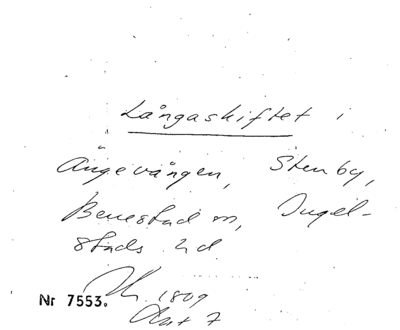 Långaskiftet i
Ängevången, Stenby,
Benestad sn, Ingel-
stads hd.
Nr 7553. 1809
Akt 7